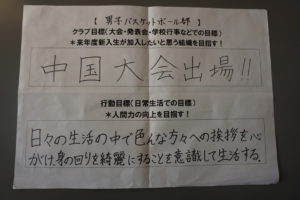 【 男子バスケットボール部 】
クラブ目標(大会・発表会・学校行事などでの目標)
＊来年度新入生が加入したいと思う組織を目指す！
中国大会出場!!
行動目標(日常生活での目標)
＊人間力の向上を目指す！
日々の生活の中で色んな方々への挨拶を心
がけ、身の回りを綺麗にすることを意識して生活する。